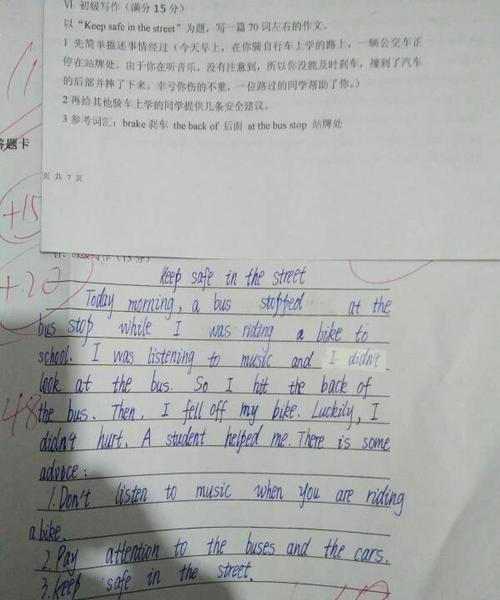 VI 初级写作（满分 15 分）
以“Keep safe in the street”为题，写一篇 70 词左右的作文。
1 先简单描述事情经过（今天早上，在你骑自行车上学的路上，一辆公交车正
停在站牌处。由于你在听音乐，没有注意到，所以你没能及时刹车，撞到了汽车
的后部并摔了下来。幸亏你伤的不重，一位路过的同学帮助了你。）
2 再给其他骑车上学的同学提供几条安全建议。
3 参考词汇：brake 刹车 the back of 后面 at the bus stop 站牌处
答题卡
页 共 7 页
+15
+20
48
Keep safe in the street
Today morning, a bus stopped at the
bus stop while I was riding a bike to
school. I was listening to music and I didn't
look at the bus. So I hit the back of
the bus. Then, I fell off my bike. Luckily, I
didn't hurt. A student helped me. There is some
advice:
1. Don't listen to music when you are riding
a bike.
2. Pay attention to the buses and the cars.
3. Keep safe in the street.